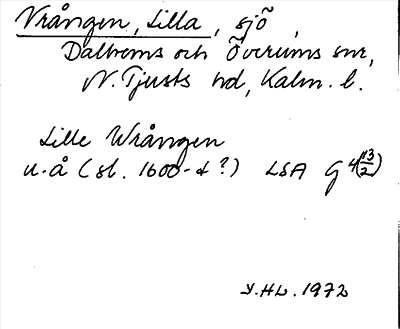 Vrången, Lilla, sjö,
Dalhems och Överums snr,
N. Tjusts hd, Kalm. l.
Lille Wrången
u. å (sl. 1600-t?) LSA G 4(13/2)
Y.HL. 1972